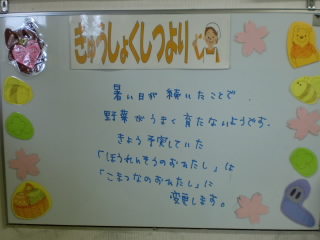 きゅうしょくしつより
暑い日が続いたことで
野菜がうまく育たないようです。
きょう予定していた
「ほうれんそうのおひたし」は
「こまつなのおひたし」に
変更します。